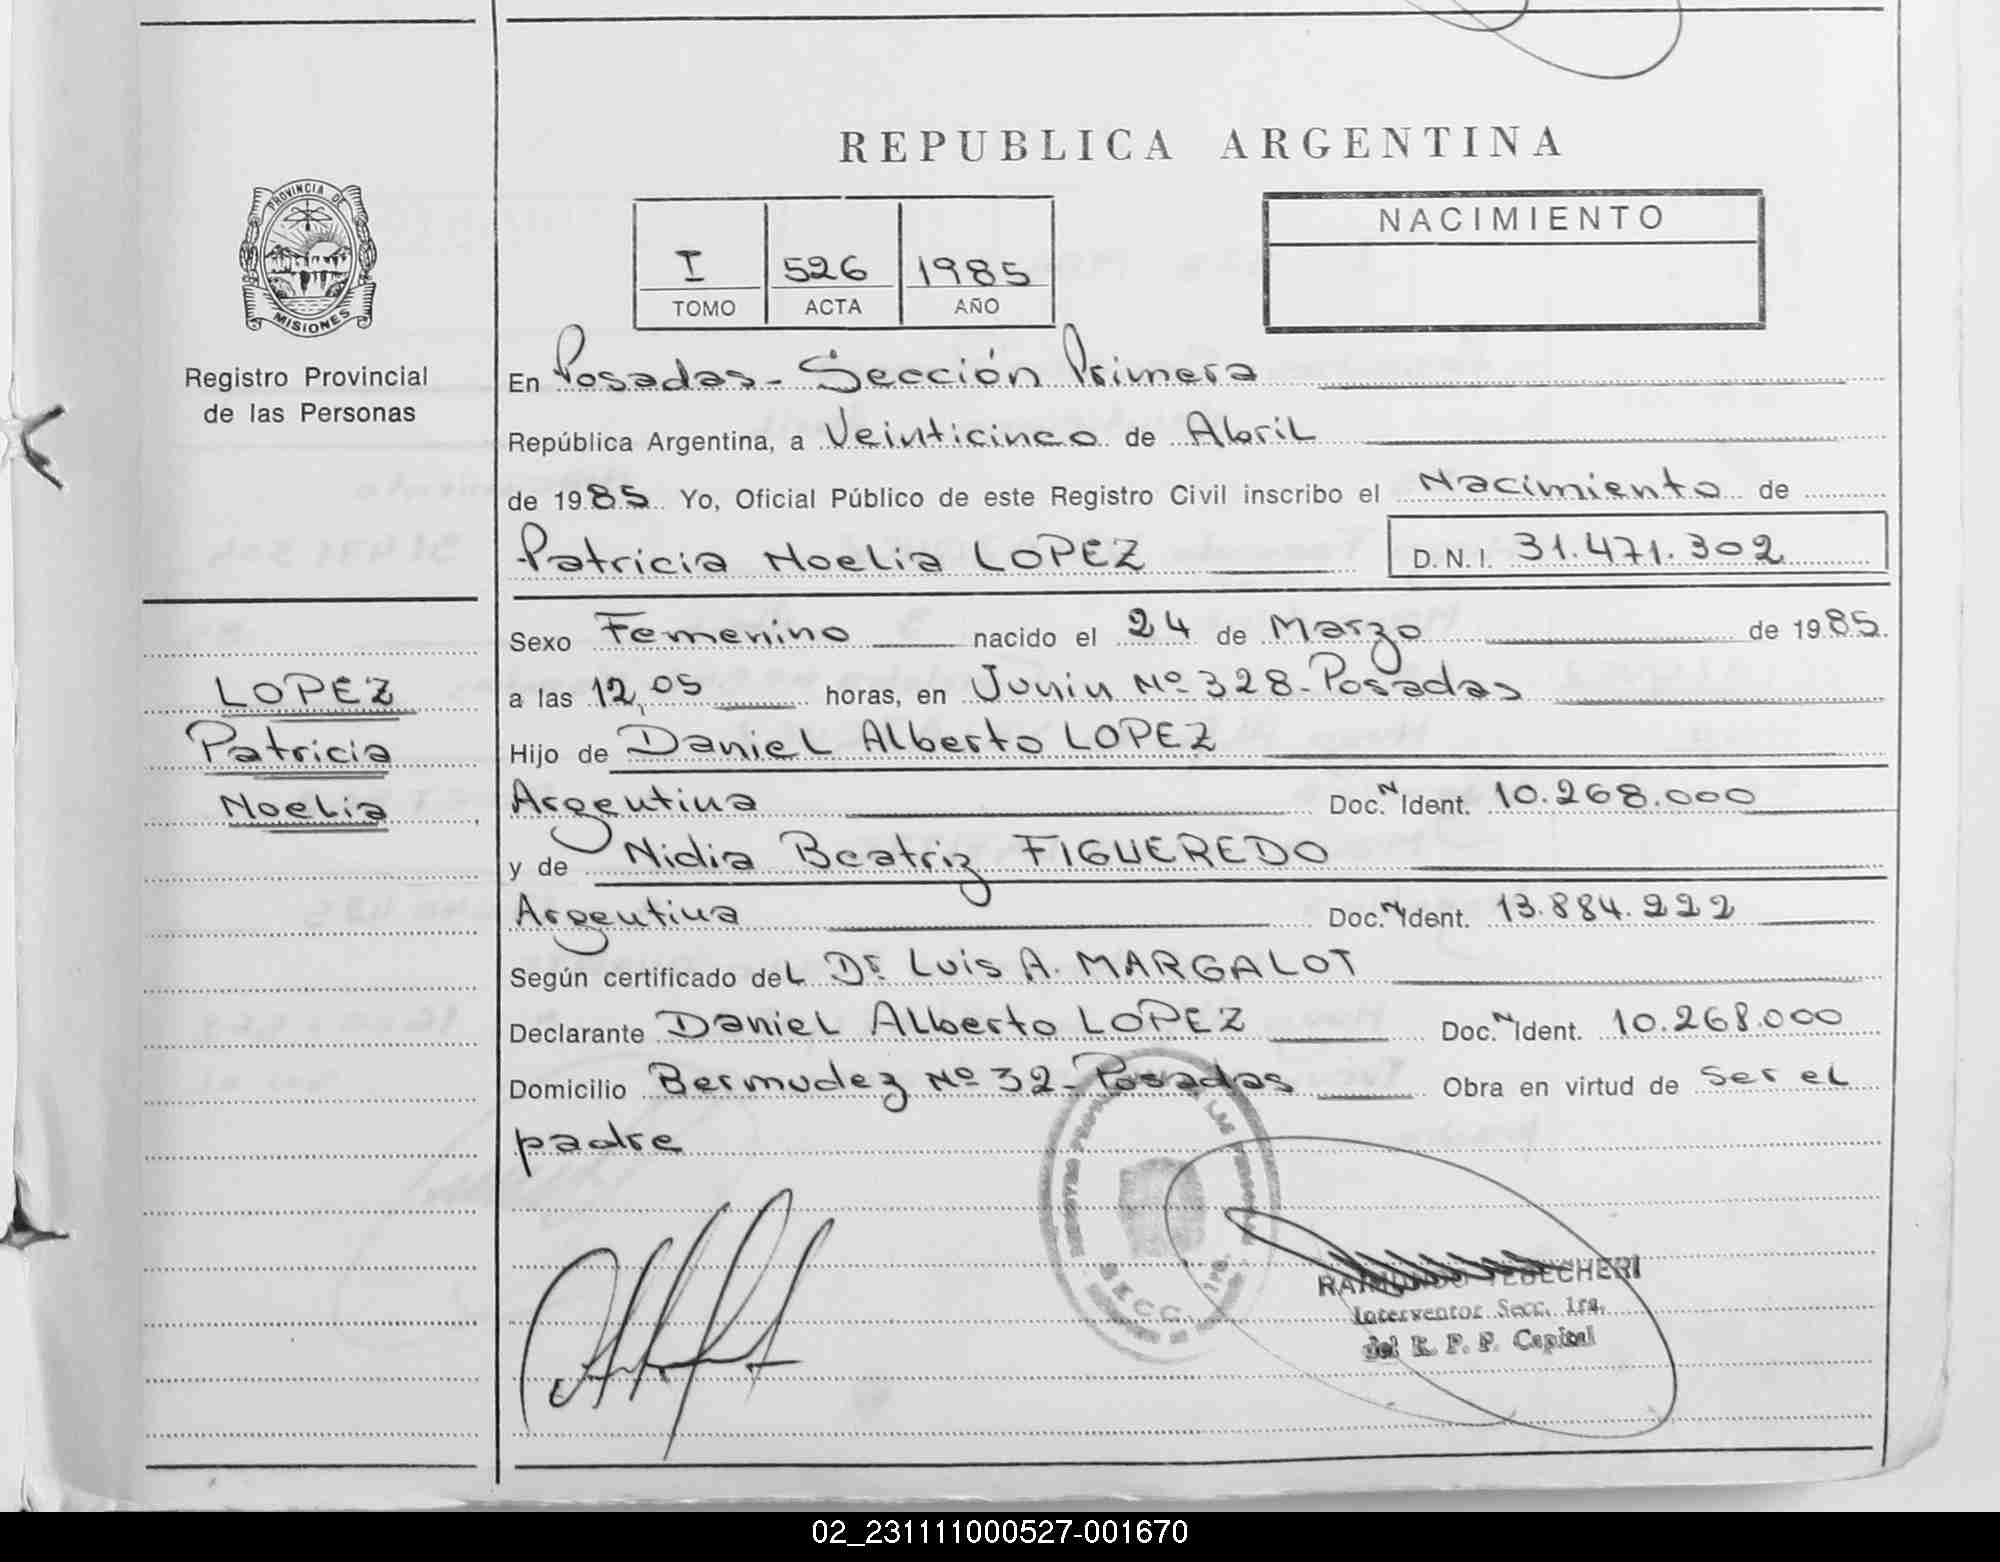 REPUBLICA ARGENTINA
PROVINCIA DE
MISIONES
Registro Provincial
de las Personas
I 526 1985
TOMO ACTA AÑO
NACIMIENTO
En Posadas - Sección Primera
República Argentina, a Veinticinco de Abril
de 1985 Yo, Oficial Público de este Registro Civil inscribo el Nacimiento de
Patricia Noelia LOPEZ D.N.I. 31.471.302
Sexo Femenino nacido el 24 de Marzo de 1985.
a las 12,05 horas, en Junin Nº 328 - Posadas
Hijo de Daniel Alberto LOPEZ
Argentina Doc.N Ident. 10.268.000
y de Nidia Beatriz FIGUEREDO
Argentina Doc.N Ident. 13.884.222
Según certificado del Dr. Luis A. MARGALOT
Declarante Daniel Alberto LOPEZ Doc.N Ident. 10.268.000
Domicilio Bermudez Nº 32 - Posadas Obra en virtud de ser el
padre
LOPEZ
Patricia
Noelia
SECC. 1ra.
RAIMUNDO TEBECHERI
Interventor Secc. 1ra.
del R. P. P. Capital
02_231111000527-001670